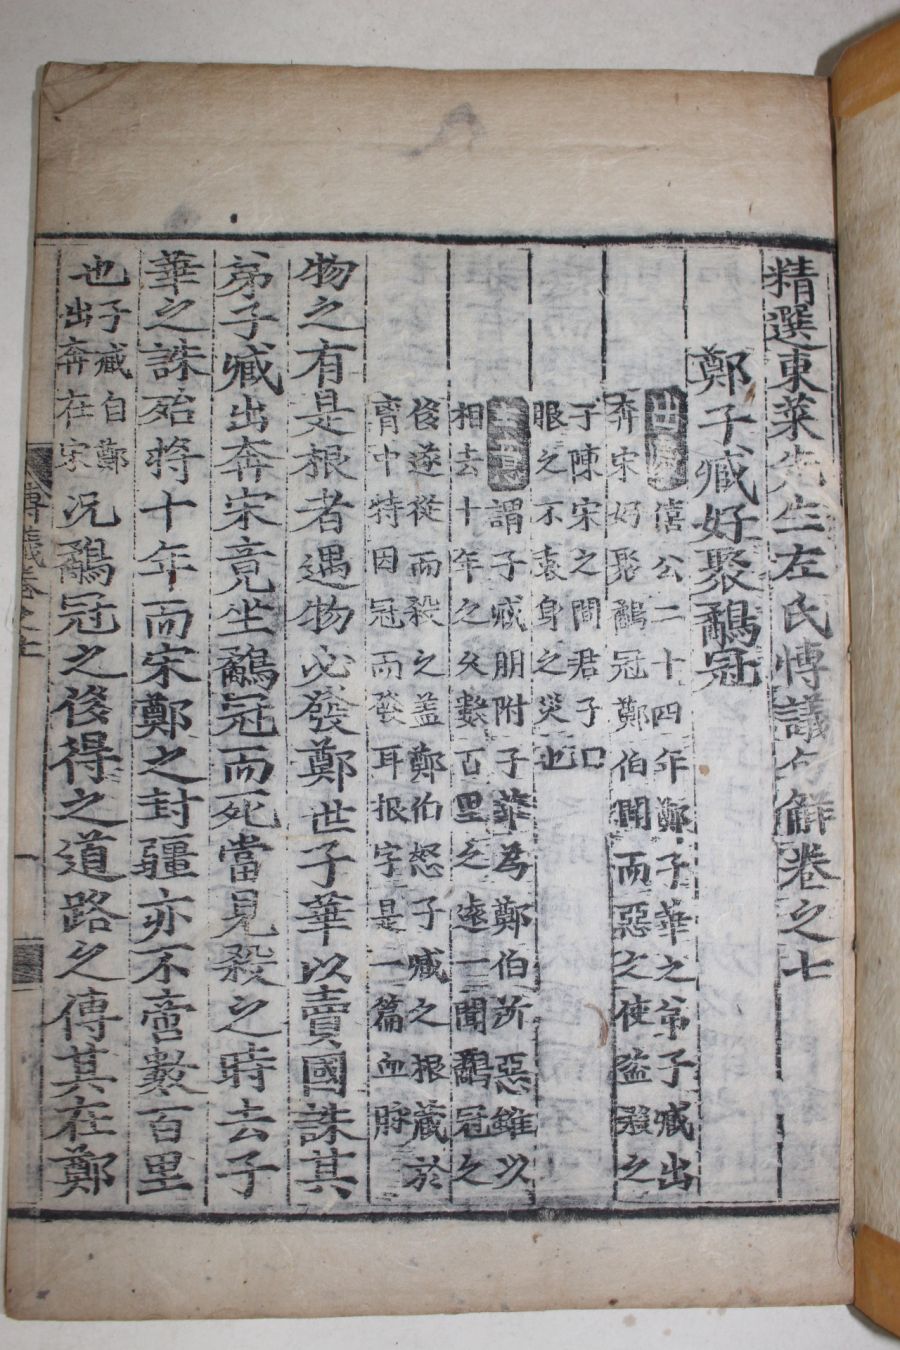 精選東萊先生左氏博議句解卷之七
鄭子臧好聚鷸冠
出處僖公二十四年鄭子華之弟子臧出
奔宋好聚鷸冠鄭伯聞而惡之使盜殺之
于陳宋之間君子曰
服之不衷身之災也
主意謂子臧朋附子華為鄭伯所惡雖以
相去十年之久數百里之遠一聞鷸冠之
後遂從而殺之盖鄭伯怒子臧之根藏於
胷中特因冠而發耳根字是一篇血脉
物之有是根者遇物必發鄭世子華以賣國誅其
弟子臧出奔宋竟坐鷸冠而死當見殺之時去子
華之誅殆將十年而宋鄭之封疆亦不啻數百里
也子臧自鄭
出奔在宋況鷸冠之後得之道路之傳其在鄭